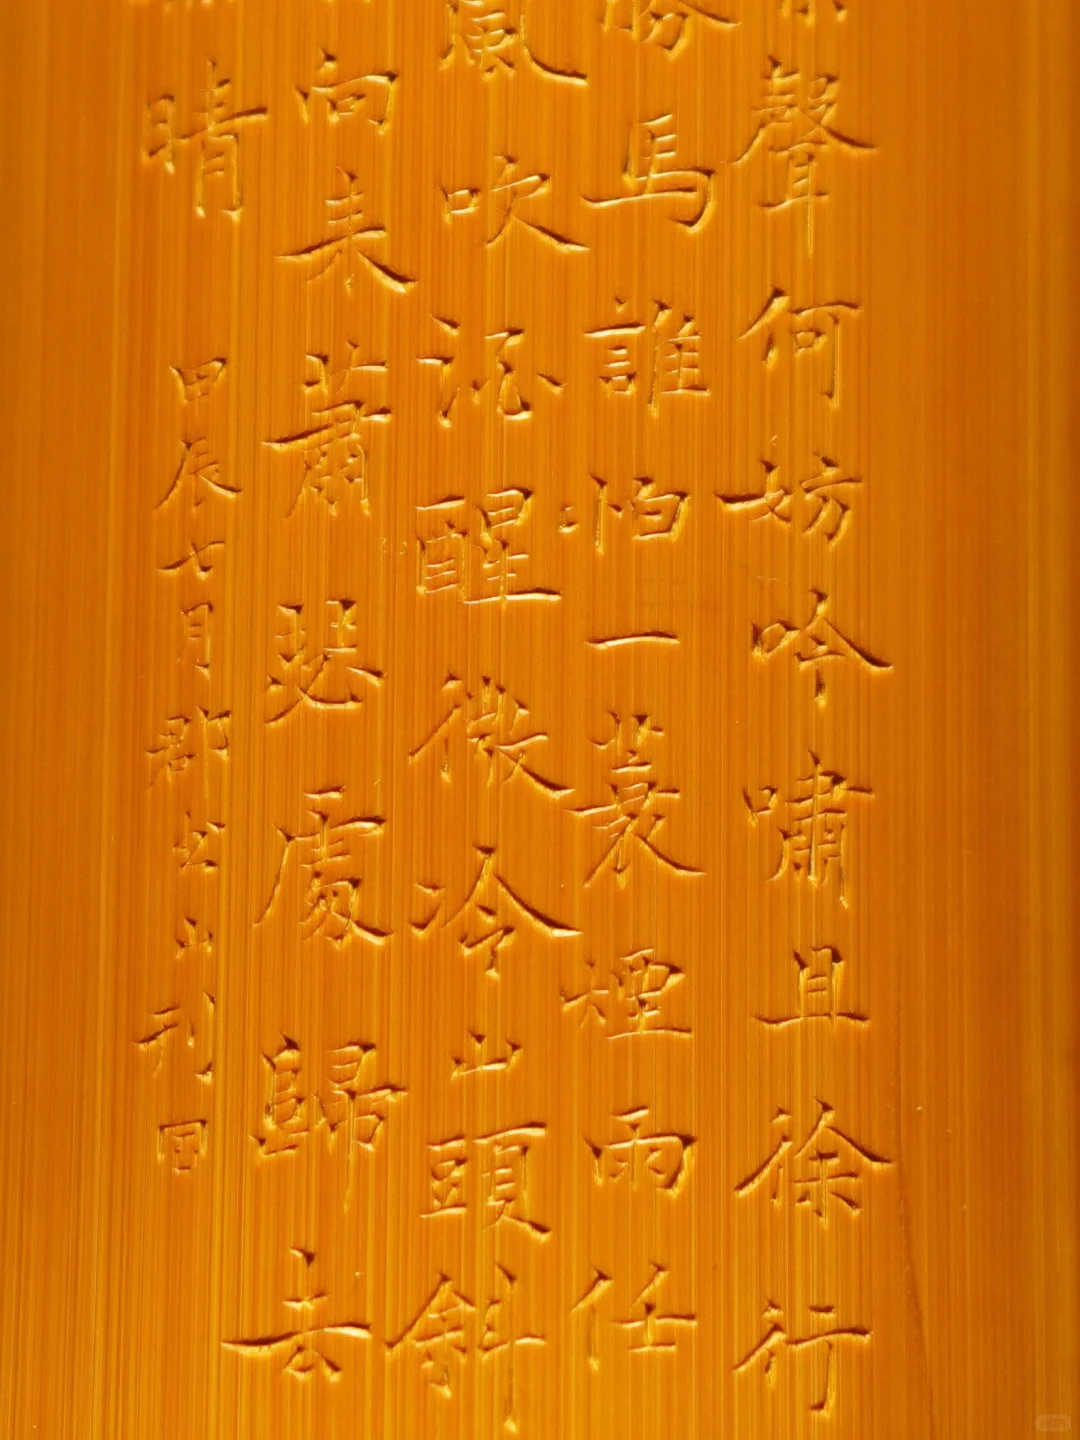 聲何妨吟嘯且徐行
勝馬誰怕一蓑煙雨任
風吹酒醒微冷山頭斜
向来蕭瑟處歸去
晴
甲辰七月郡山刊